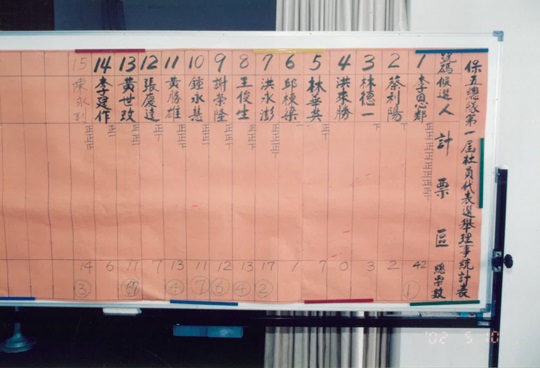 保五總隊第一屆社員代表選舉理事統計表
號碼 候選人 計票區 總票數
1 李惠鄉 正正正正正正正正丅 42 ①
2 蔡利陽 丅 2
3 林德一 下 3
4 洪來勝 0
5 林華英 正丅 7
6 邱 一 1
7 洪永澎 正正正丅 17 ②
8 王俊生 正正下 13
9 謝榮隆 正正丅 12
10 鍾永 正正一 11
11 黃勝雄 正正下 13
12 張慶達 正丅 7
13 黃世政 正正一 11
14 李建作 正一 6
15 14 ③
'02 5 10